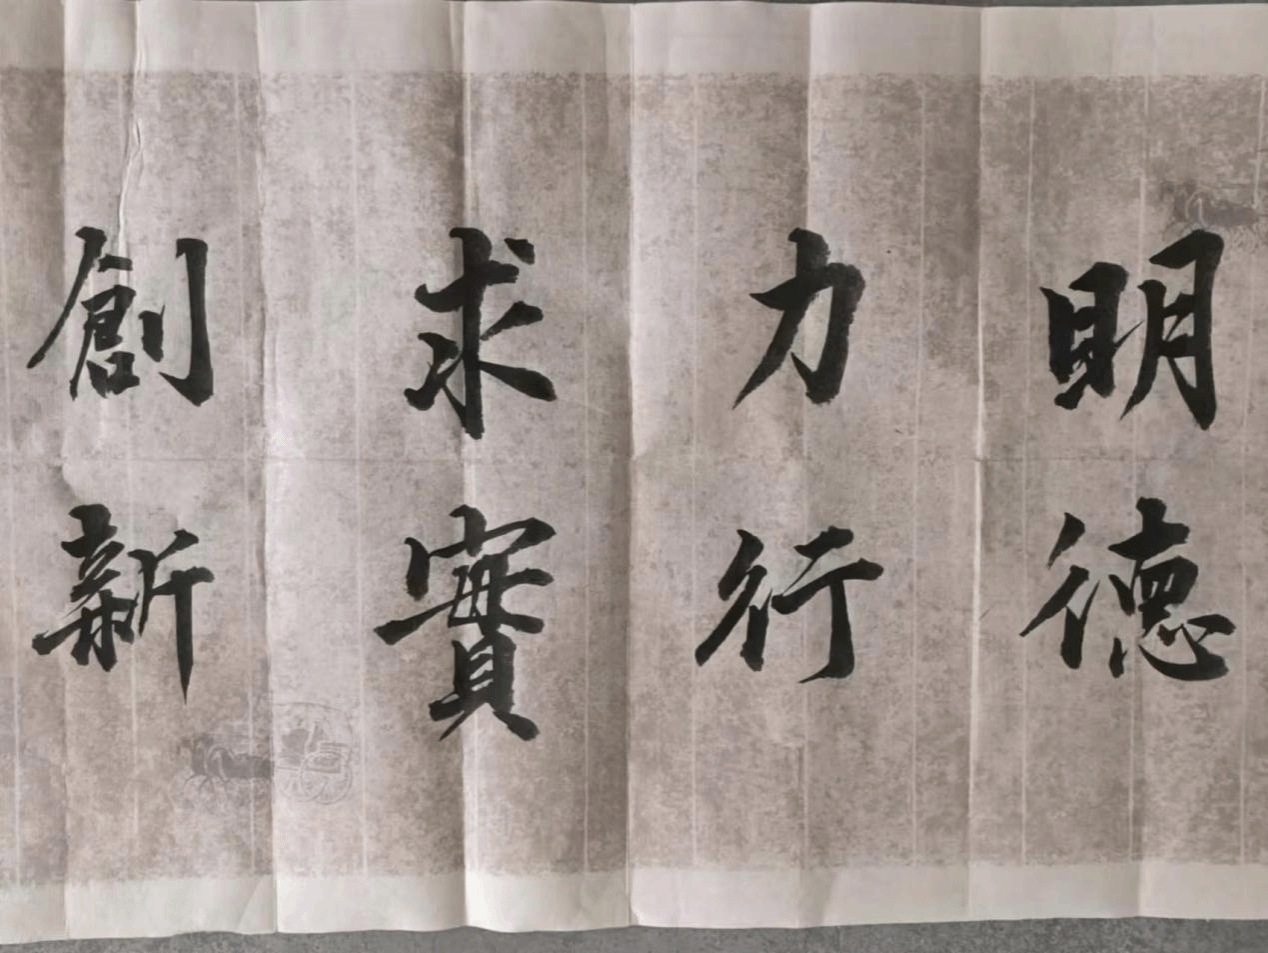 明德
力行
求實
創新